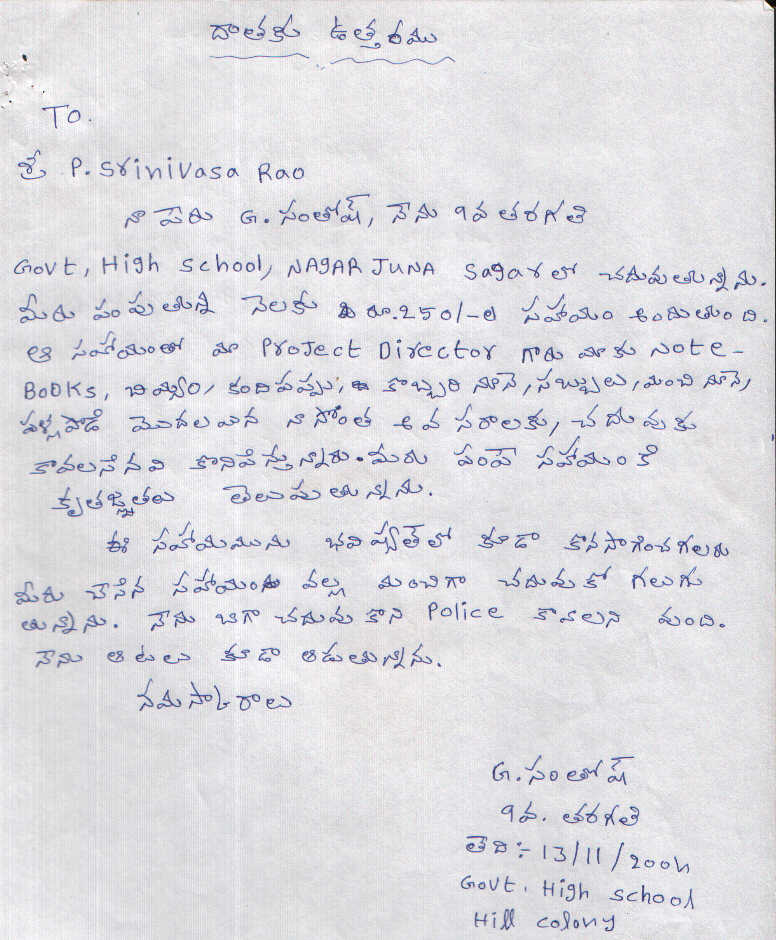 దాతకు ఉత్తరము
TO.
శ్రీ P. Srinivasa Rao
నా పేరు G. సంతోష్, నేను 9వ తరగతి
Govt, High school, NAGAR JUNA Sagar లో చదువుతున్నాను.
మీరు పంపుతున్న నెలకు రూ.250/-ల సహాయం అందుతుంది.
ఆ సహాయంతో మా Project Director గారు మాకు Note-
Books, బియ్యం, కందిపప్పు, కొబ్బరి నూనె, సబ్బులు, మంచి నూనె,
పళ్ళపొడి మొదలయిన నా సొంత అవసరాలకు, చదువుకు
కావలసినవి కొనిపిస్తున్నారు. మీరు పంపే సహాయంకి
కృతజ్ఞతలు తెలుపుతున్నాను.
ఈ సహాయమును భవిష్యత్ లో కూడా కొనసాగించగలరు
మీరు చేసిన సహాయం వల్ల మంచిగా చదువుకో గలుగు
తున్నాను. నేను బాగా చదువుకొని Police కావలని వుంది.
నేను ఆటలు కూడా ఆడుతున్నాను.
నమస్కారాలు
G. సంతోష్
9వ. తరగతి
తేది :- 13/11/2004
Govt. High school
Hill colony